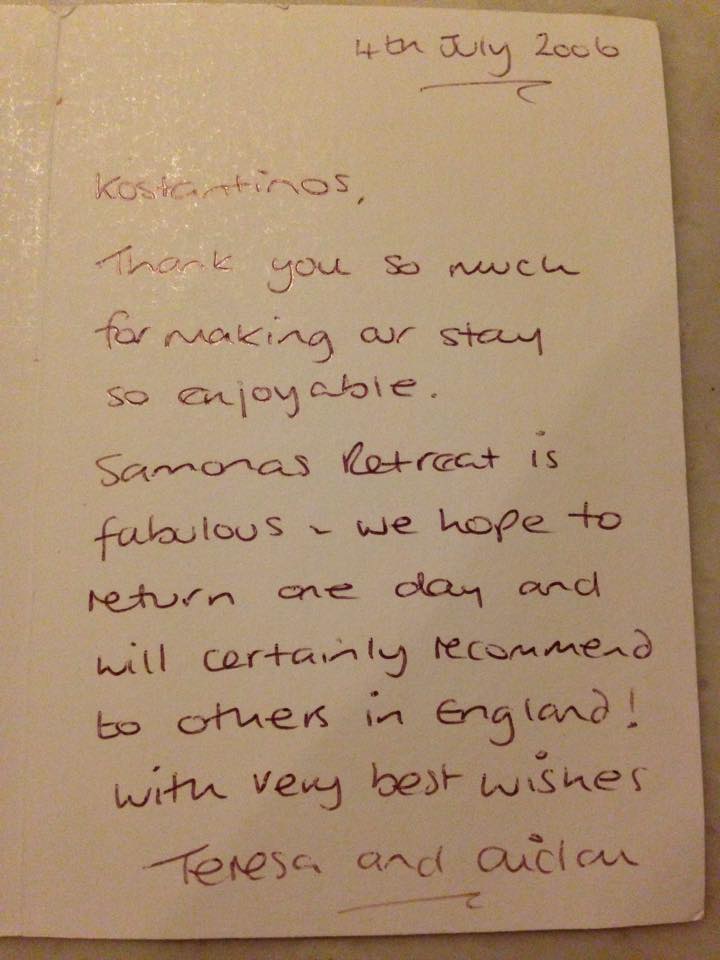 4th July 2006
Kostantinos,
Thank you so much
for making our stay
so enjoyable.
Samonas Retreat is
fabulous - we hope to
return one day and
will certainly recommend
to others in England!
with very best wishes
Teresa and Aidan